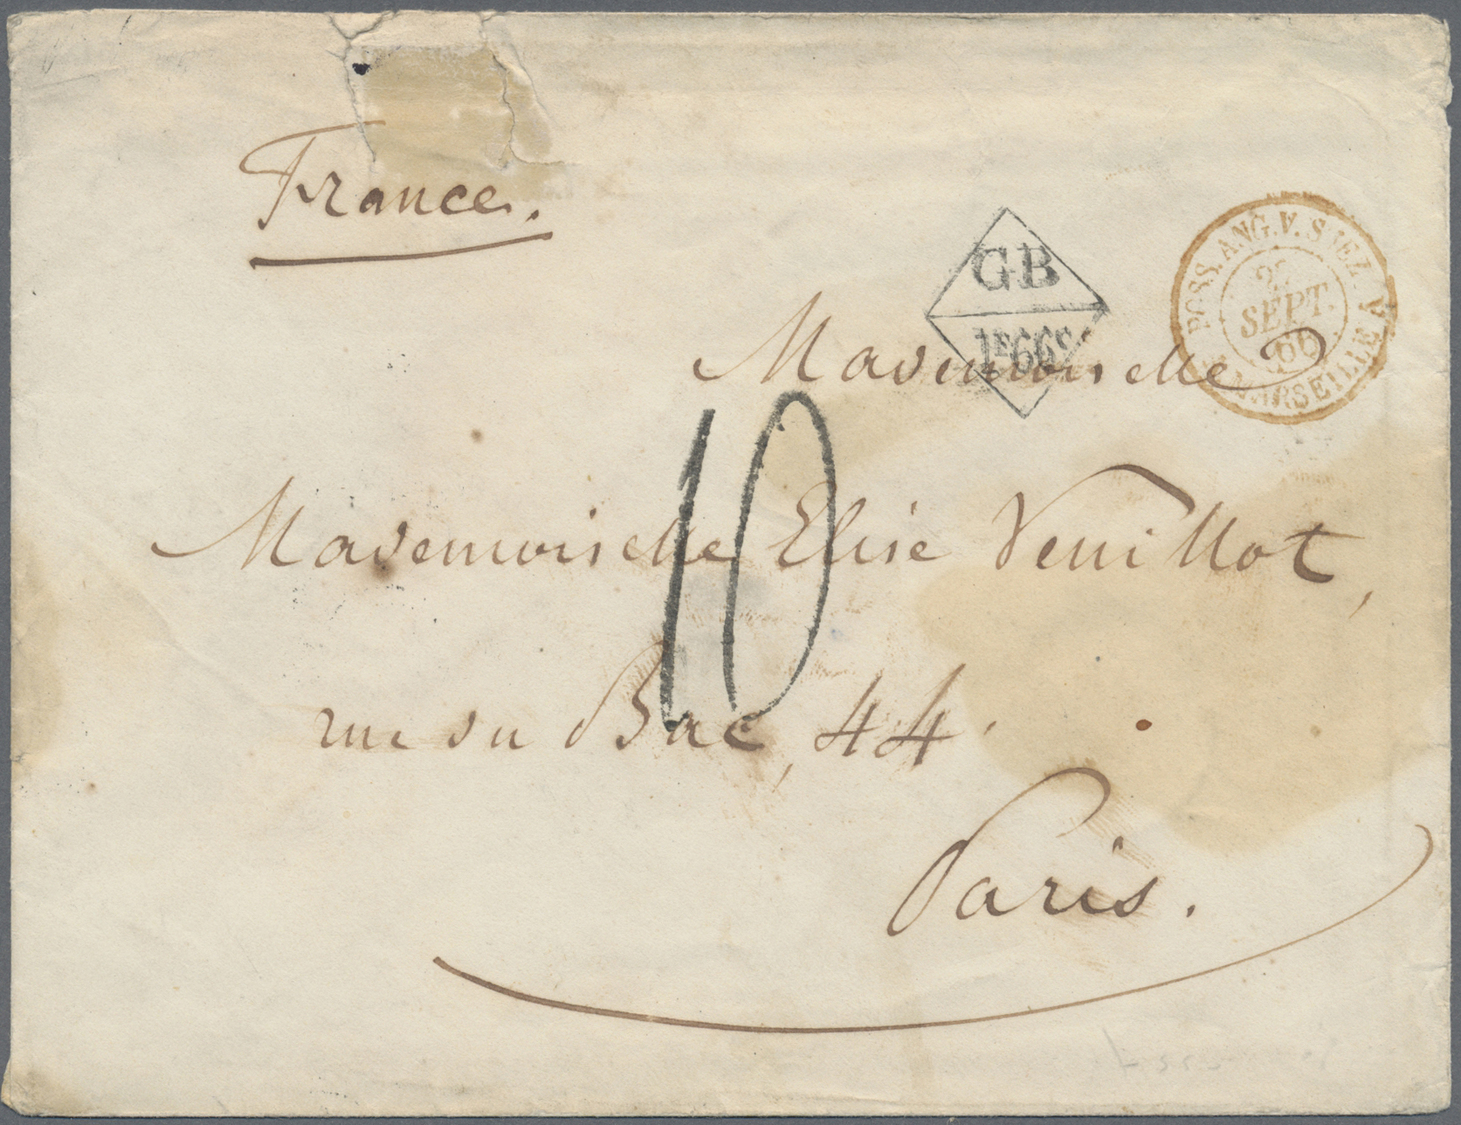 France.
GB
1F66c
POSS. ANG. V. SUEZ. A
SEPT.
66
MARSEILLE
Mademoiselle
10
Mademoiselle Elise Veuillot,
rue du Bac, 44
Paris.